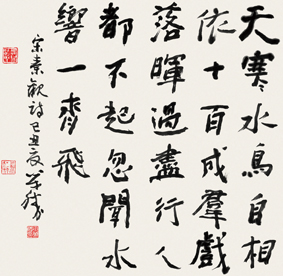 天寒水鳥自相
依十百成羣戲
落暉過盡行人
都不起忽聞水
響一齊飛
宋秦觀詩己丑夏